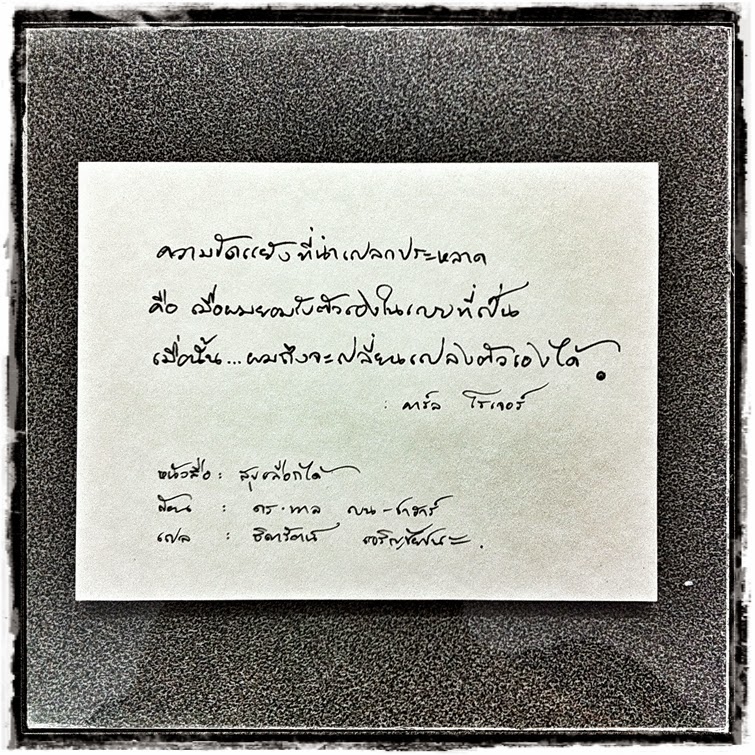 ความขัดแย้งที่น่าแปลกประหลาด
คือ เมื่อผมยอมรับตัวเองในแบบที่เป็น
เมื่อนั้น...ผมถึงจะเปลี่ยนแปลงตัวเองได้
: คาร์ล โรเจอร์
หนังสือ : สุขเลือกได้
เขียน : ดร. ทาล เบน-ชาฮาร์
แปล : ธิดารัตน์